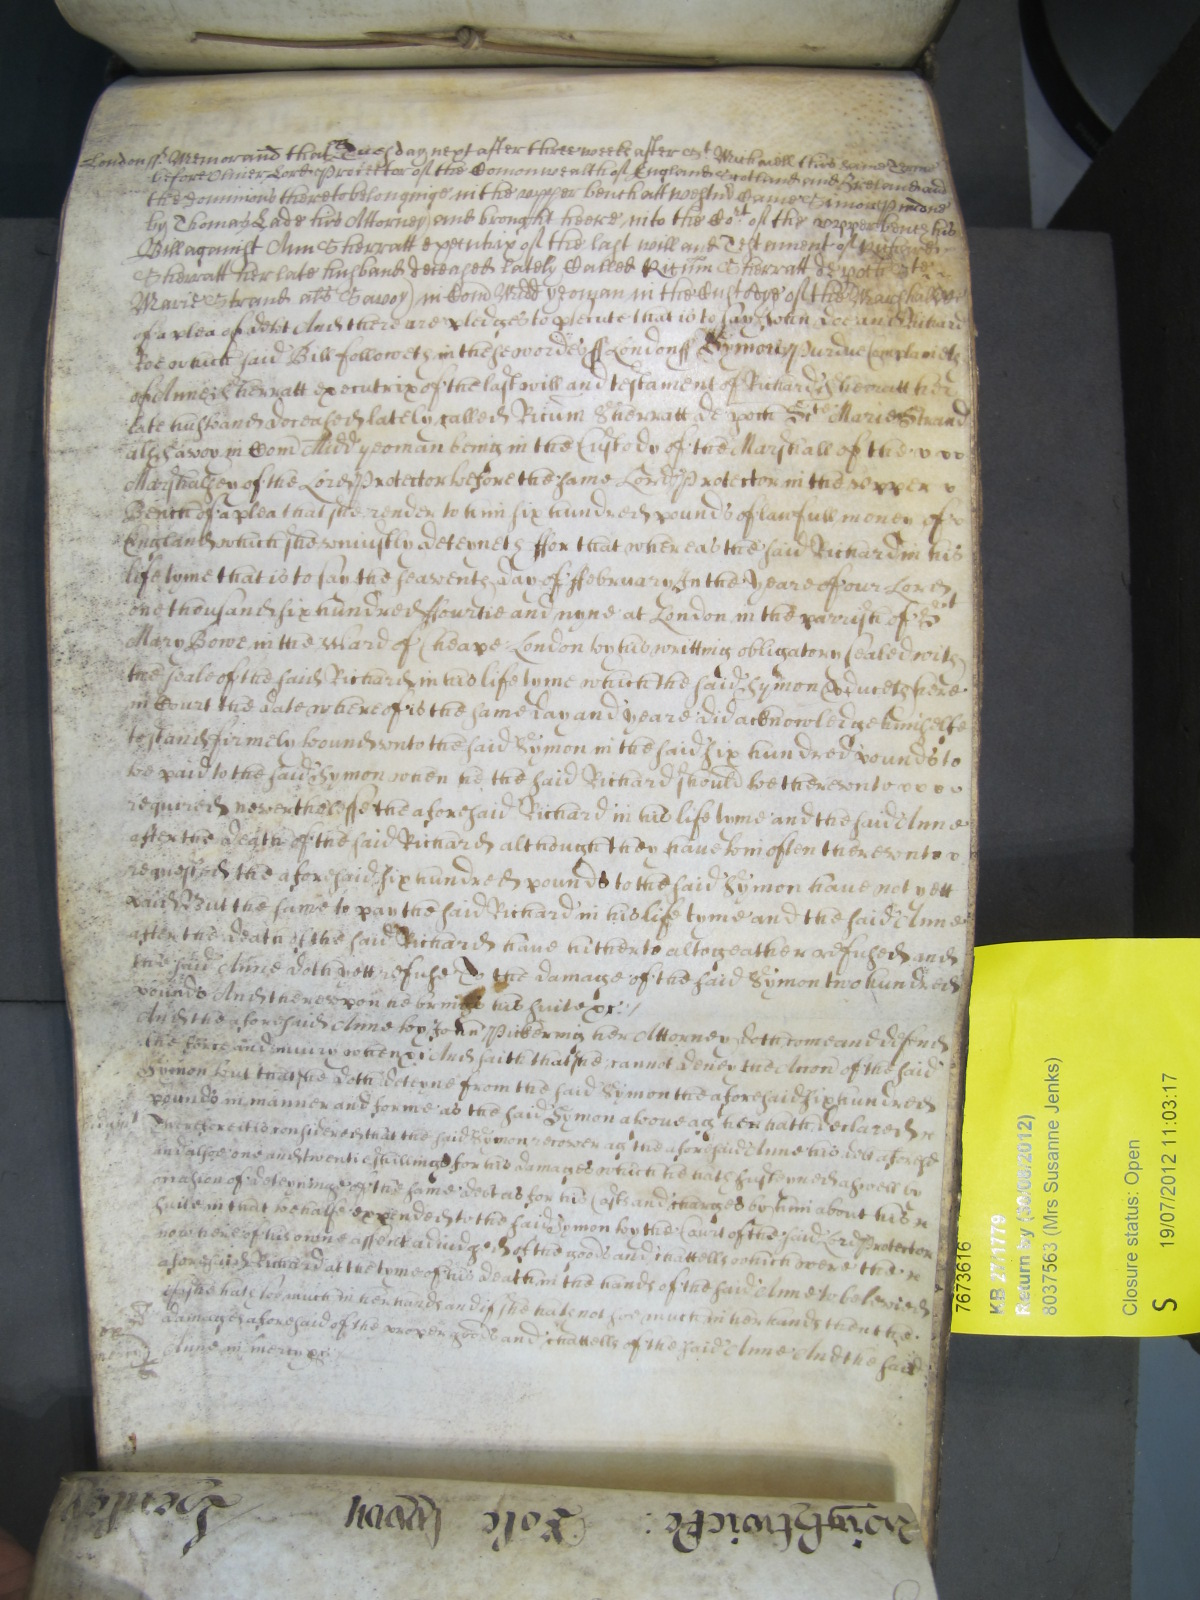 London ss Memorand that Tuesday next after three weeks after St Michaell this same Terme
before Oliver Lord Protector of the Comonwealth of England Scotland and Ireland and
the dominions thereto belonginge in the upper bench att Westm Came Simon Purdue
by Thomas Lade his Attorney and brought heere into the Cort of the upper bench his
Bill against Ann Sherratt executrix of the last will and Testament of Richard
Sherratt her late husband deceased lately Called Ricum Sherratt de poch Ste
Marie Strand als Savoy in Com Midd yeoman in the Custody of the Marshall
of a plea of debt And there are pledges to psecute that is to say John Doe and Richard
Roe which said Bill followeth in these wordes ss London ss Symon Purdue complaineth
of Anne Sherratt executrix of the last will and testament of Richard Sherratt her
late husband deceased lately called Ricum Sherratt de poch Ste Marie Strand
als Savoy in Com Midd yeoman being in the Custody of the Marshall of the
Marshalsey of the Lord Protector before the same Lord Protector in the upper
Bench of a plea that she render to him six hundred pounds of lawfull money of
England which she uniustly deteyneth ffor that whereas the said Richard in his
life tyme that is to say the seaventh day of ffebruary In the yeare of our Lord
one thousand six hundred ffourtie and nyne at London in the parrish of St
Mary Bowe in the Ward of Cheape London by his writting obligatory sealed with
the seale of the said Richard in his life tyme which the said Symon pduceth here
in Court the date whereof is the same day and yeare did acknowledge himselfe
to stand firmely bound unto the said Symon in the said six hundred pounds to
be paid to the said Symon when he the said Richard should be thereunto
required neverthelesse the aforesaid Richard in his life tyme and the said Anne
after the death of the said Richard although they have bin often thereunto
requested the aforesaid six hundred pounds to the said Symon have not yett
paid But the same to pay the said Richard in his life tyme and the said Anne
after the death of the said Richard have hitherto altogeather refused and
the said Anne doth yett refuse To the damage of the said Symon two hundred
pounds And thereupon he brings his suite &c
And the aforesaid Anne by John Pickering her Attorney doth come and defend
the force and iniury when &c And saith that she cannot deney the Accon of the said
Symon but that she doth deteyne from the said Symon the aforesaid six hundred
pounds in manner and forme as the said Symon above agt her hath declared
Therefore it is considered that the said Symon recover agt the aforesaid Anne his debt aforesd
and alsoe one and twentie shillings for his damages which he hath susteyned aswell by
occasion of deteyning of the same debt as for his Costs and charges by him about his
suite in that behalfe expended to the said Symon by the Court of the said Lord Protector
now here of his owne assent adiudged of the goods and chattells which were the
aforesaid Richard at the tyme of his death in the hands of the said Anne to be levied
if she hath soe much in her hands and if she hath not soe much in her hands then the
damages aforesaid of the proper goods and chattells of the said Anne And the said
Anne in mercy &c
mercy
Wightwicke: Role upon
7673616
KB 27/1779
Return by (30/08/2012)
8037563 (Mrs Susanne Jenks)
Closure status: Open
S 19/07/2012 11:03:17